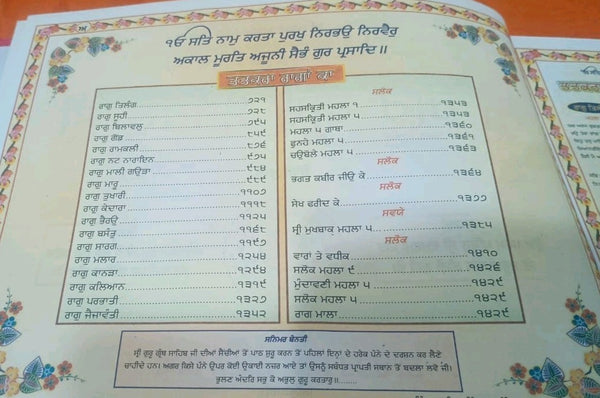 ਅ
ੴ ਸਤਿ ਨਾਮੁ ਕਰਤਾ ਪੁਰਖੁ ਨਿਰਭਉ ਨਿਰਵੈਰੁ
ਅਕਾਲ ਮੂਰਤਿ ਅਜੂਨੀ ਸੈਭੰ ਗੁਰ ਪ੍ਰਸਾਦਿ ॥
ਤਤਕਰਾ ਰਾਗਾਂ ਕਾ
ਰਾਗੁ ਤਿਲੰਗ ੭੨੧
ਰਾਗੁ ਸੂਹੀ ੭੨੮
ਰਾਗੁ ਬਿਲਾਵਲੁ ੭੯੫
ਰਾਗੁ ਗੋਂਡ ੮੫੯
ਰਾਗੁ ਰਾਮਕਲੀ ੮੭੬
ਰਾਗੁ ਨਟ ਨਾਰਾਇਨ ੯੭੫
ਰਾਗੁ ਮਾਲੀ ਗਉੜਾ ੯੮੪
ਰਾਗੁ ਮਾਰੂ ੯੮੯
ਰਾਗੁ ਤੁਖਾਰੀ ੧੧੦੭
ਰਾਗੁ ਕੇਦਾਰਾ ੧੧੧੮
ਰਾਗੁ ਭੈਰਉ ੧੧੨੫
ਰਾਗੁ ਬਸੰਤੁ ੧੧੬੮
ਰਾਗੁ ਸਾਰਗ ੧੧੯੭
ਰਾਗੁ ਮਲਾਰ ੧੨੫੪
ਰਾਗੁ ਕਾਨੜਾ ੧੨੯੪
ਰਾਗੁ ਕਲਿਆਨ ੧੩੧੯
ਰਾਗੁ ਪਰਭਾਤੀ ੧੩੨੭
ਰਾਗੁ ਜੈਜਾਵੰਤੀ ੧੩੫੨
ਸਲੋਕ
ਸਹਸਕ੍ਰਿਤੀ ਮਹਲਾ ੧ ੧੩੫੩
ਸਹਸਕ੍ਰਿਤੀ ਮਹਲਾ ੫ ੧੩੫੩
ਮਹਲਾ ੫ ਗਾਥਾ ੧੩੬੦
ਫੁਨਹੇ ਮਹਲਾ ੫ ੧੩੬੧
ਚਉਬੋਲੇ ਮਹਲਾ ੫ ੧੩੬੩
ਸਲੋਕ
ਭਗਤ ਕਬੀਰ ਜੀਉ ਕੇ ੧੩੬੪
ਸਲੋਕ
ਸੇਖ ਫਰੀਦ ਕੇ ੧੩੭੭
ਸਵਯੇ
ਸ੍ਰੀ ਮੁਖਬਾਕ ਮਹਲਾ ੫ ੧੩੮੫
ਸਲੋਕ
ਵਾਰਾਂ ਤੇ ਵਧੀਕ ੧੪੧੦
ਸਲੋਕ ਮਹਲਾ ੯ ੧੪੨੬
ਮੁੰਦਾਵਣੀ ਮਹਲਾ ੫ ੧੪੨੯
ਸਲੋਕ ਮਹਲਾ ੫ ੧੪੨੯
ਰਾਗ ਮਾਲਾ ੧੪੨੯
ਸਨਿਮਰ ਬੇਨਤੀ
ਸ੍ਰੀ ਗੁਰੂ ਗ੍ਰੰਥ ਸਾਹਿਬ ਜੀ ਦੀਆਂ ਸੈਂਚੀਆ ਤੋਂ ਪਾਠ ਸ਼ੁਰੂ ਕਰਨ ਤੋਂ ਪਹਿਲਾਂ ਇਨ੍ਹਾਂ ਦੇ ਹਰੇਕ ਪੰਨੇ ਦੇ ਦਰਸ਼ਨ ਕਰ ਲੈਣੇ
ਚਾਹੀਦੇ ਹਨ। ਅਗਰ ਕਿਸੇ ਪੰਨੇ ਉਪਰ ਕੋਈ ਉਕਾਈ ਨਜ਼ਰ ਆਏ ਤਾਂ ਉਸਨੂੰ ਸਬੰਧਤ ਪ੍ਰਾਪਤੀ ਸਥਾਨ ਤੋਂ ਬਦਲਾ ਲਵੋ ਜੀ।
ਭੁਲਣ ਅੰਦਰਿ ਸਭੁ ਕੋ ਅਭੁਲੁ ਗੁਰੂ ਕਰਤਾਰੁ॥........